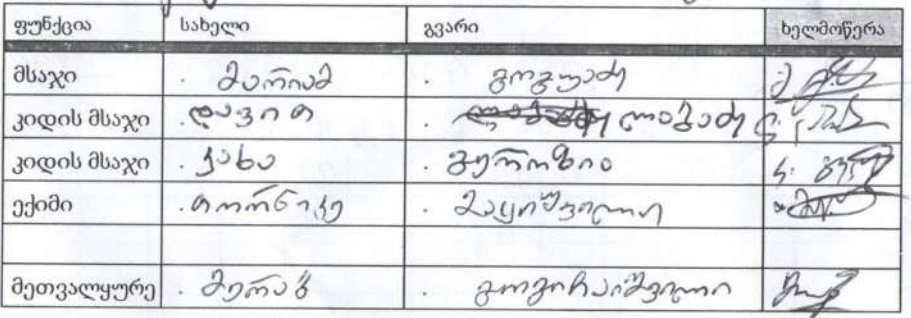 ფუნქცია სახელი გვარი ხელმოწერა
მსაჯი მარიამ გოგუაძე
კიდის მსაჯი დავით ლობჟაძე
კიდის მსაჯი კახა
ექიმი თორნიკე მაცოშვილი
მეთვალყურე მერაბ გოგიჩაიშვილი